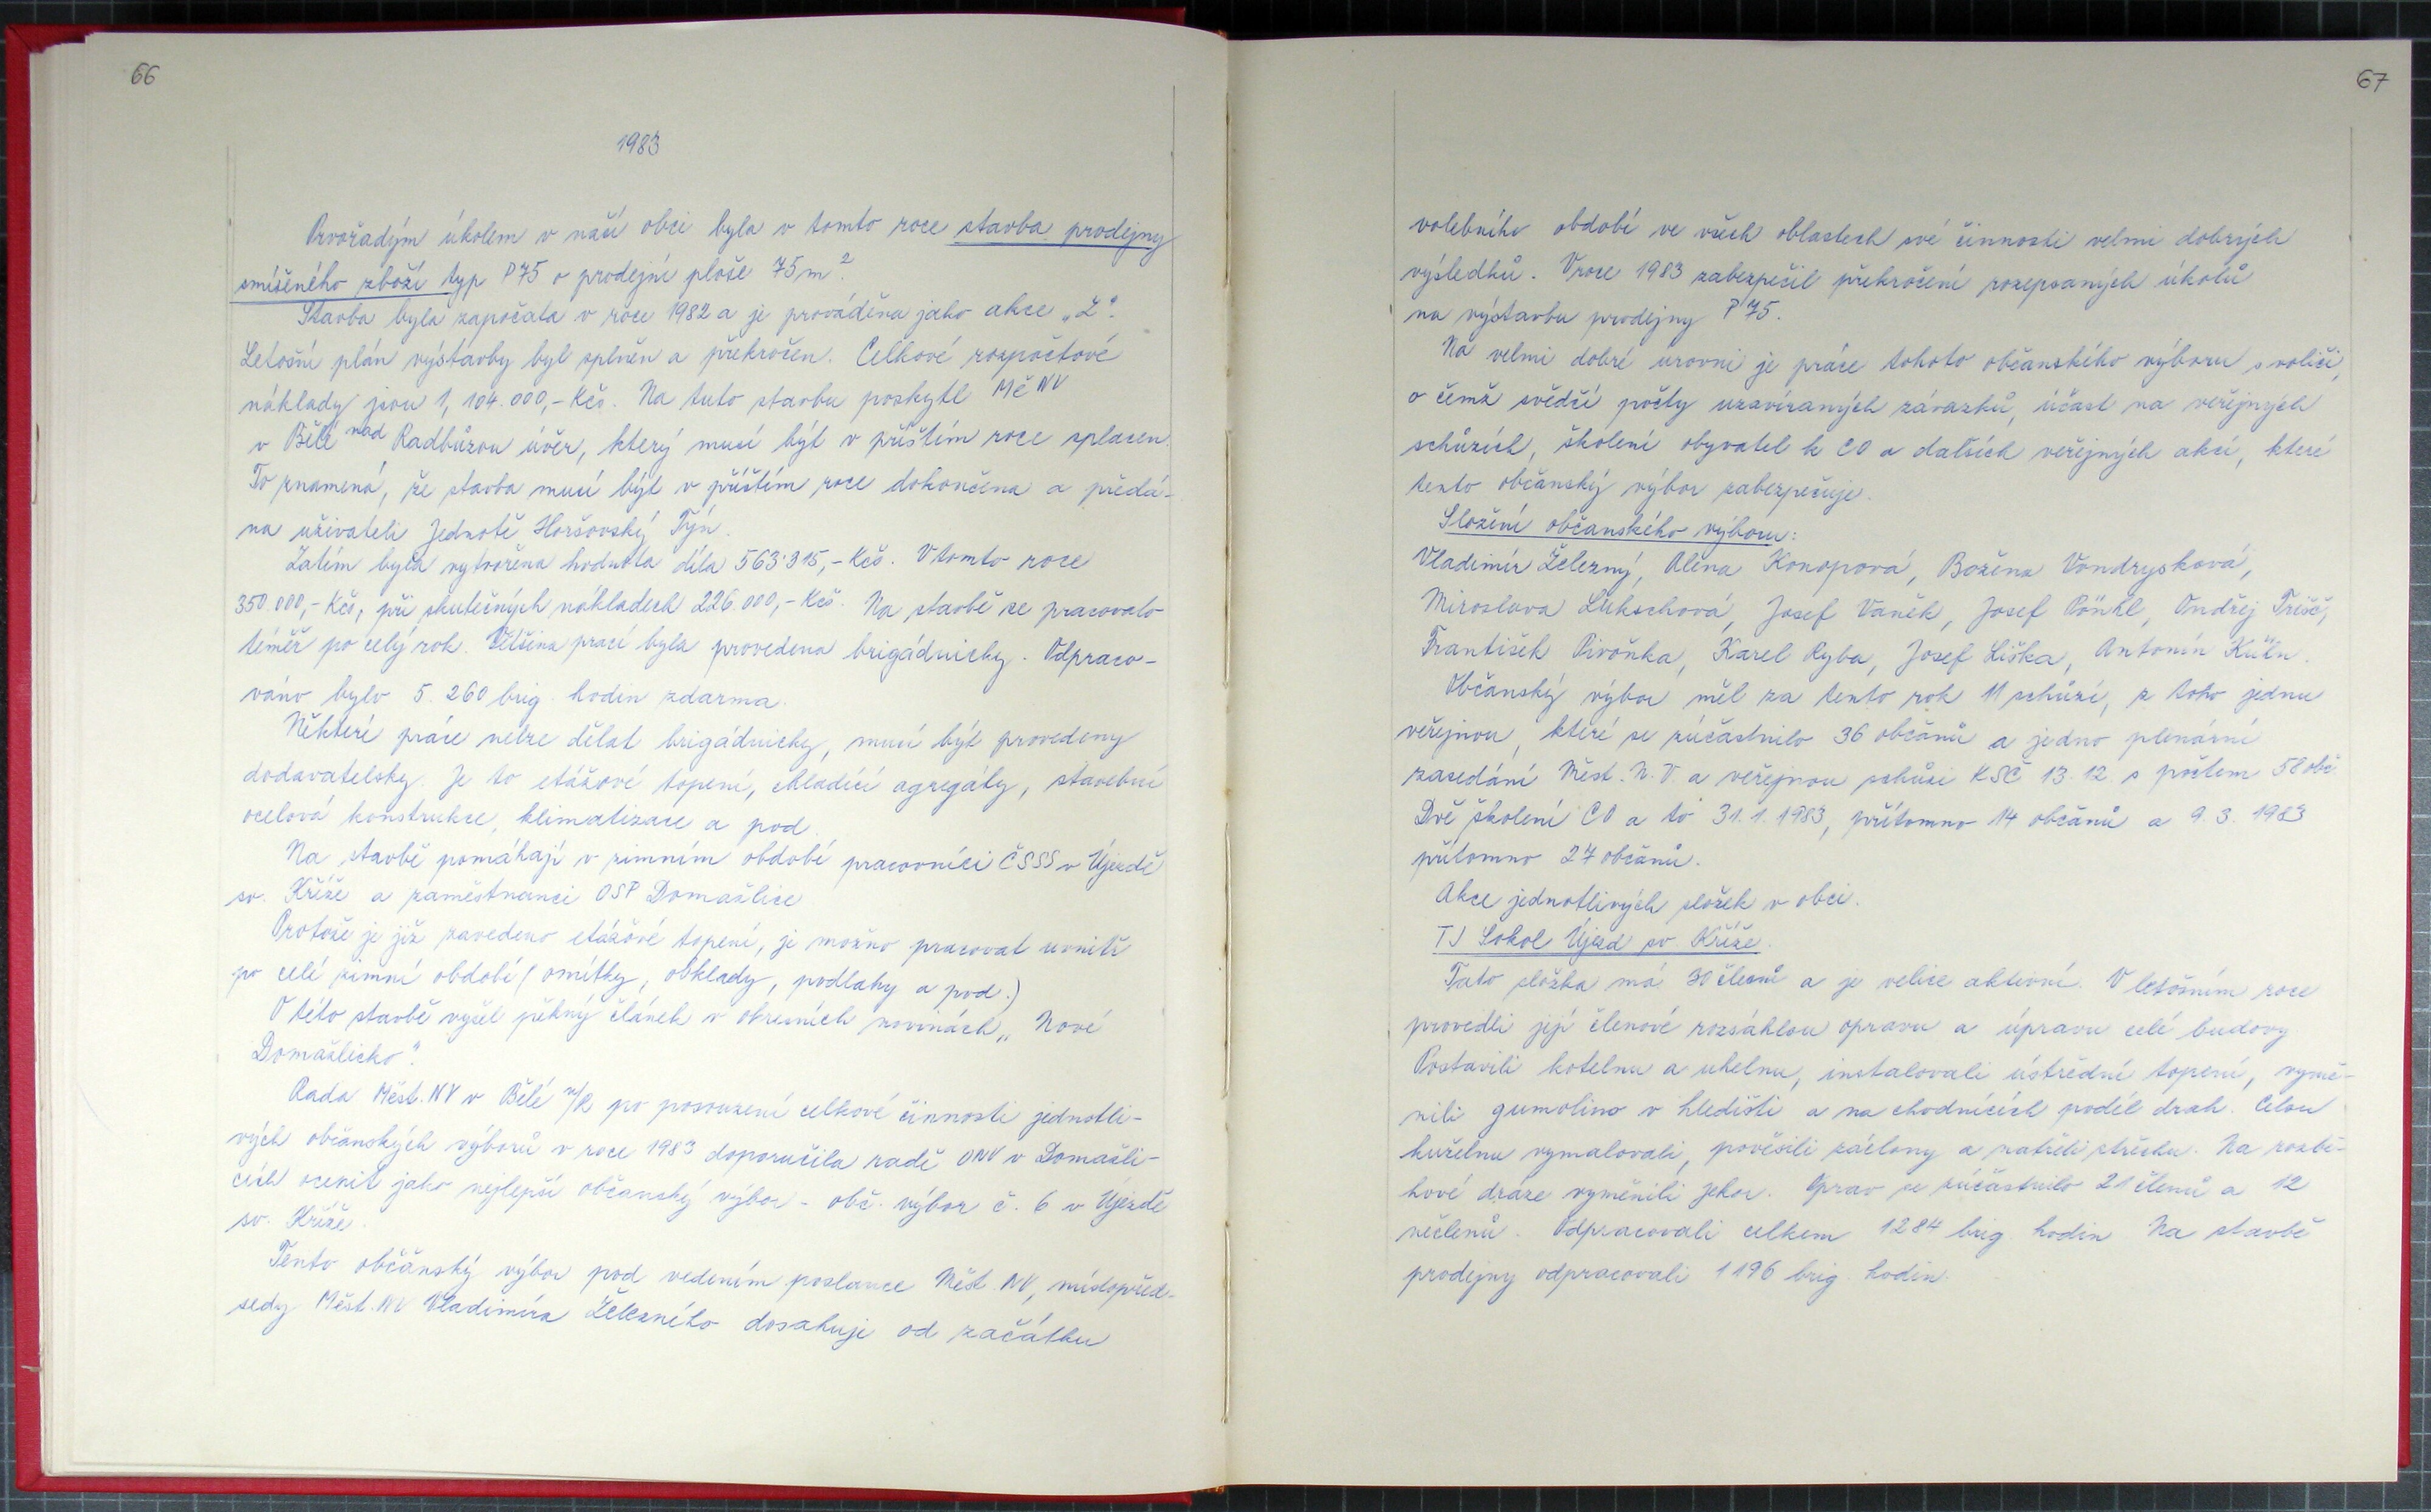 66
1983
Prvořadým úkolem v naší obci byla v tomto roce stavba prodejny
smíšeného zboží typ P75 o prodejní ploše 75m².
Stavba byla započata v roce 1982 a je prováděna jako akce „Z".
Letošní plán výstavby byl splněn a překročen. Celkové rozpočtové
náklady jsou 1,104.000,- Kčs. Na tuto stavbu poskytl MěNV
v Bělé nad Radbuzou úvěr, který musí být v příštím roce splacen.
To znamená, že stavba musí být v příštím roce dokončena a předá-
na uživateli Jednotě Horšovský Týn.
Zatím byla vytvořena hodnota díla 563.315,- Kčs. V tomto roce
350.000,- Kčs, při skutečných nákladech 226.000,- Kčs. Na stavbě se pracovalo
téměř po celý rok. Většina prací byla provedena brigádnicky. Odpraco-
váno bylo 5.260 brig. hodin zdarma.
Některé práce nelze dělat brigádnicky, musí být provedeny
dodavatelsky. Je to etážové topení, chladící agregáty, stavební
ocelová konstrukce, klimatizace a pod.
Na stavbě pomáhají v zimním období pracovníci ČSSS v Újezdě
sv. Kříže a zaměstnanci OSP Domažlice.
Protože je již zavedeno etážové topení, je možno pracovat uvnitř
po celé zimní období (omítky, obklady, podlahy a pod.)
O této stavbě vyšel pěkný článek v okresních novinách „Nové
Domažlicko".
Rada Měst. NV v Bělé n/R po posouzení celkové činnosti jednotli-
vých občanských výborů v roce 1983 doporučila radě ONV v Domažli-
cích ocenit jako nejlepší občanský výbor - obč. výbor č. 6 v Újezdě
sv. Kříže.
Tento občanský výbor pod vedením poslance Měst. NV, místopřed-
sedy Měst. NV Vladimíra Železného dosahuje od začátku
67
volebního období ve všech oblastech své činnosti velmi dobrých
výsledků. V roce 1983 zabezpečil překročení rozepsaných úkolů
na výstavbu prodejny P75.
Na velmi dobré urovni je práce tohoto občanského výboru s voliči,
o čemž svědčí počty uzavíraných závazků, účast na veřejných
schůzích, školení obyvatel k CO a dalších veřejných akcí, které
tento občanský výbor zabezpečuje.
Složení občanského výboru:
Vladimír Železný, Alena Konopová, Božena Vondrysková,
Miroslava Lukschová, Josef Vaněk, Josef Pönkl, Ondřej Trešč,
František Pivoňka, Karel Ryba, Josef Liška, Antonín
Občanský výbor měl za tento rok 11 schůzí, z toho jednu
veřejnou, které se zúčastnilo 36 občanů a jedno plenární
zasedání Měst. N.V. a veřejnou schůzi KSČ 13.12. s počtem 58 obč.
Dvě školení CO a to 31.1.1983, přítomno 14 občanů a 9.3.1983
přítomno 27 občanů.
Akce jednotlivých složek v obci.
TJ Sokol Újezd sv Kříže.
Tato složka má 30 členů a je velice aktivní. V letošním roce
provedli její členové rozsáhlou opravu a úpravu celé budovy
Postavili kotelnu a uhelnu, instalovali ústřední topení, vymě-
nili gumolino v hledišti a na chodnících podél drah. Celou
kuželnu vymalovali, pověsili záclony a natřeli střechu. Na rozbě-
hové dráze vyměnili jekor. Oprav se zúčastnilo 21 členů a 12
nečlenů. Odpracovali celkem 1284 brig hodin Na stavbě
prodejny odpracovali 1196 brig. hodin.